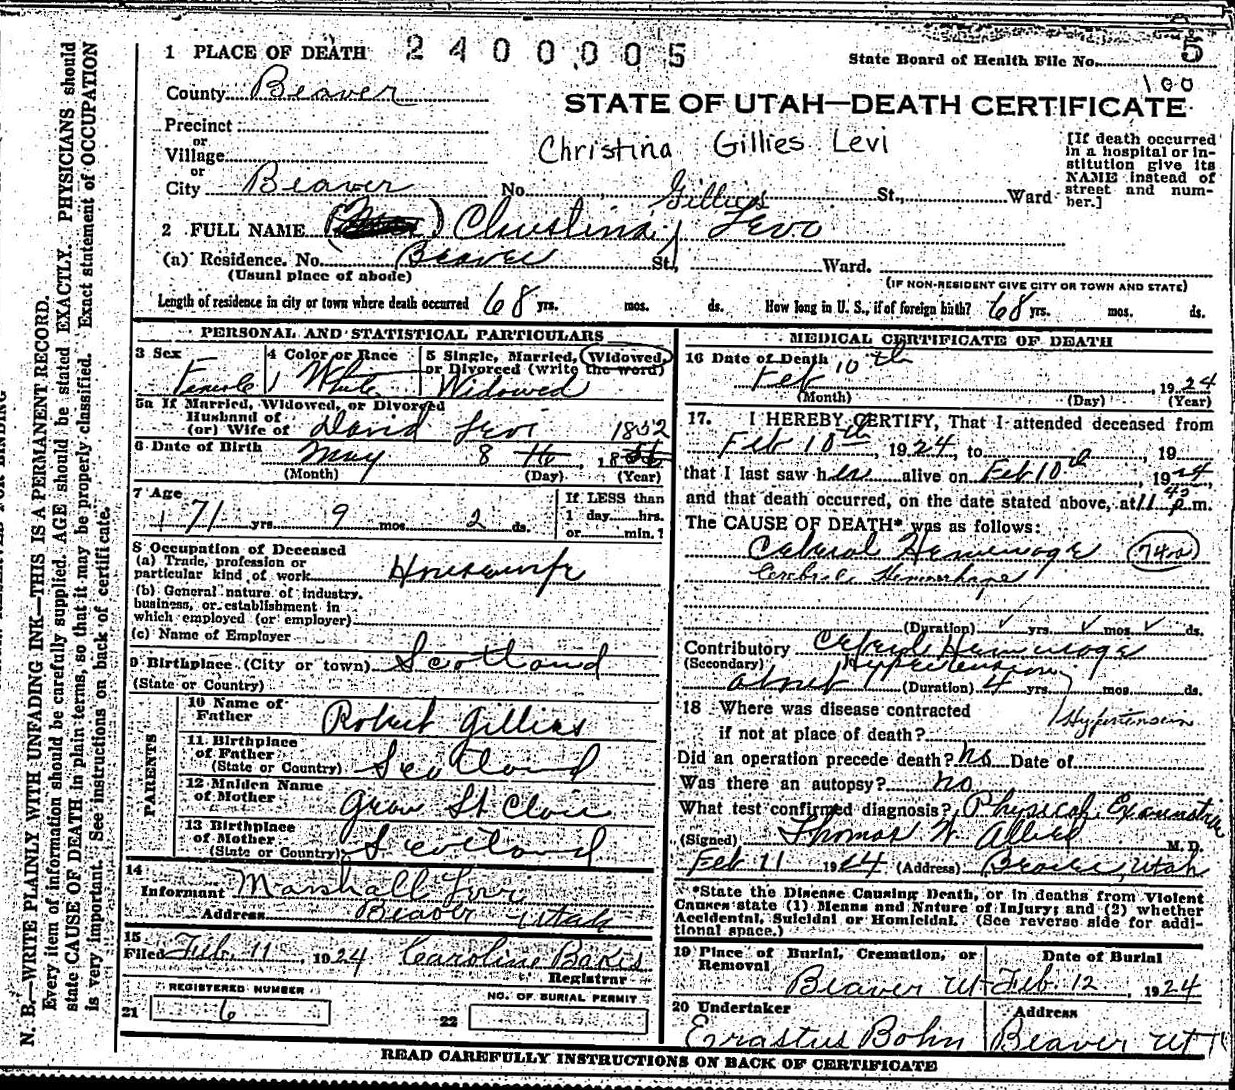 1 PLACE OF DEATH 2400005
State Board of Health File No. 5
100
County Beaver
STATE OF UTAH—DEATH CERTIFICATE
Precinct
or
Village
Christina Gillies Levi
[If death occurred in a hospital or in-
stitution give its
NAME instead of
street and num-
ber.]
or
City Beaver No. St., Ward
Gillies
2 FULL NAME Christina Levi
(a) Residence. No. Beaver St., Ward.
(Usual place of abode)
(IF NON-RESIDENT GIVE CITY OR TOWN AND STATE)
Length of residence in city or town where death occurred 68 yrs. mos. ds. How long in U. S., if of foreign birth? 68 yrs. mos. ds.
PERSONAL AND STATISTICAL PARTICULARS
3 Sex 4 Color or Race 5 Single, Married, Widowed,
or Divorced (write the word)
Female White Widowed
5a If Married, Widowed, or Divorced
Husband of
(or) Wife of David Levi
1852
6 Date of Birth May 8 th, 18
(Month) (Day) (Year)
7 Age
71 yrs. 9 mos. 2 ds.
If LESS than
1 day hrs.
or min.?
8 Occupation of Deceased
(a) Trade, profession or
particular kind of work Housewife
(b) General nature of industry,
business, or establishment in
which employed (or employer)
(c) Name of Employer
9 Birthplace (City or town) Scotland
(State or Country)
PARENTS
10 Name of
Father Robert Gillies
11 Birthplace
of Father
(State or Country) Scotland
12 Maiden Name
of Mother St Clair
13 Birthplace
of Mother
(State or Country) Scotland
14
Informant Marshall Levi
Address Beaver Utah
15
Filed Feb. 11, 1924 Caroline Bakes
Registrar
REGISTERED NUMBER
21 6
NO. OF BURIAL PERMIT
22
MEDICAL CERTIFICATE OF DEATH
16 Date of Death
Feb 10th 1924
(Month) (Day) (Year)
17. I HEREBY CERTIFY, That I attended deceased from
Feb 10th, 1924, to , 19
that I last saw her alive on Feb 10th, 1924
and that death occurred, on the date stated above, at 11 40 p.m.
The CAUSE OF DEATH* was as follows:
Cerebral Hemorrhage 74a
Cerebral Hemorrhage
(Duration) yrs. mos. ds.
Contributory Cerebral Hemorrhage
(Secondary) Hypertension
about (Duration) 4 yrs. mos. ds.
18 Where was disease contracted
Hypertension
if not at place of death?
Did an operation precede death? no Date of
Was there an autopsy? no
What test confirmed diagnosis? Physical Examination
(Signed) Thomas W. M. D.
Feb 11 1924 (Address) Beaver, Utah
*State the Disease Causing Death, or in deaths from Violent
Causes state (1) Means and Nature of Injury; and (2) whether
Accidental, Suicidal or Homicidal. (See reverse side for addi-
tional space.)
19 Place of Burial, Cremation, or
Removal
Date of Burial
Beaver Ut Feb. 12, 1924
20 Undertaker Address
Erastus Bohn Beaver UT
READ CAREFULLY INSTRUCTIONS ON BACK OF CERTIFICATE
N. B.—WRITE PLAINLY WITH UNFADING INK—THIS IS A PERMANENT RECORD.
Every item of information should be carefully supplied. AGE should be stated EXACTLY. PHYSICIANS should
state CAUSE OF DEATH in plain terms, so that it may be properly classified. Exact statement of OCCUPATION
is very important. See instructions on back of certificate.